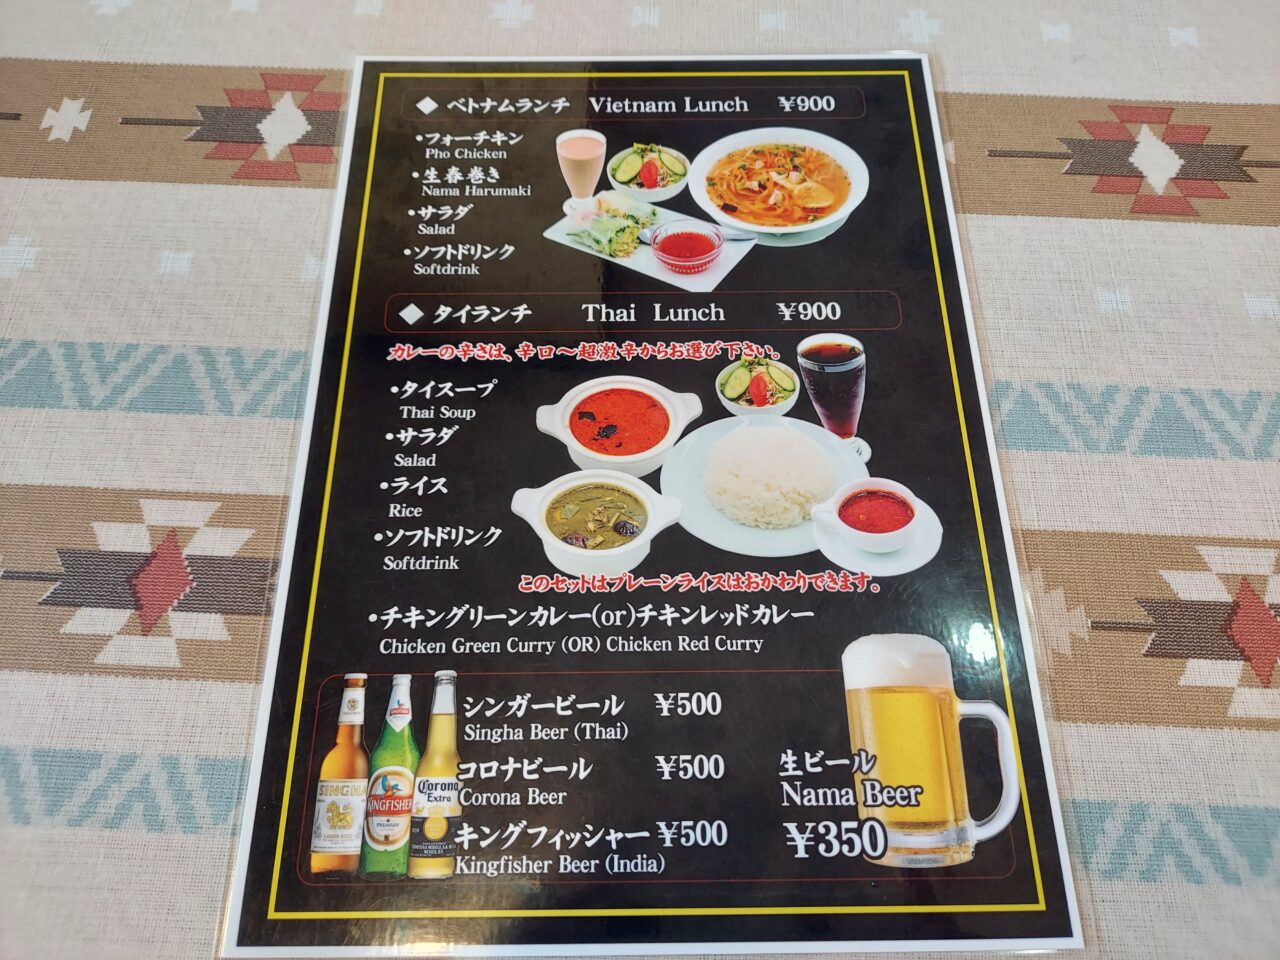 ◆ ベトナムランチ Vietnam Lunch ¥900
・フォーチキン
Pho Chicken
・生春巻き
Nama Harumaki
・サラダ
Salad
・ソフトドリンク
Softdrink
◆ タイランチ Thai Lunch ¥900
カレーの辛さは、辛口～超激辛からお選び下さい。
・タイスープ
Thai Soup
・サラダ
Salad
・ライス
Rice
・ソフトドリンク
Softdrink
このセットはプレーンライスはおかわりできます。
・チキングリーンカレー(or)チキンレッドカレー
Chicken Green Curry (OR) Chicken Red Curry
シンガービール ¥500
Singha Beer (Thai)
コロナビール ¥500
Corona Beer
キングフィッシャー ¥500
Kingfisher Beer (India)
生ビール
Nama Beer
¥350
SINGHA
KINGFISHER
PREMIUM
Corona
Extra